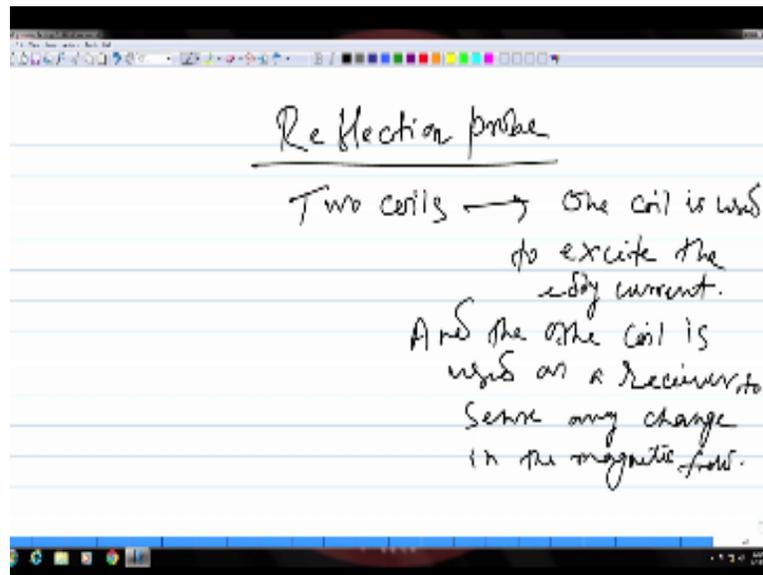 Reflection probe
Two coils → One coil is used
to excite the
eddy current.
And the othe coil is
used as a Receiver to
Sense any change
in the magnetic field.